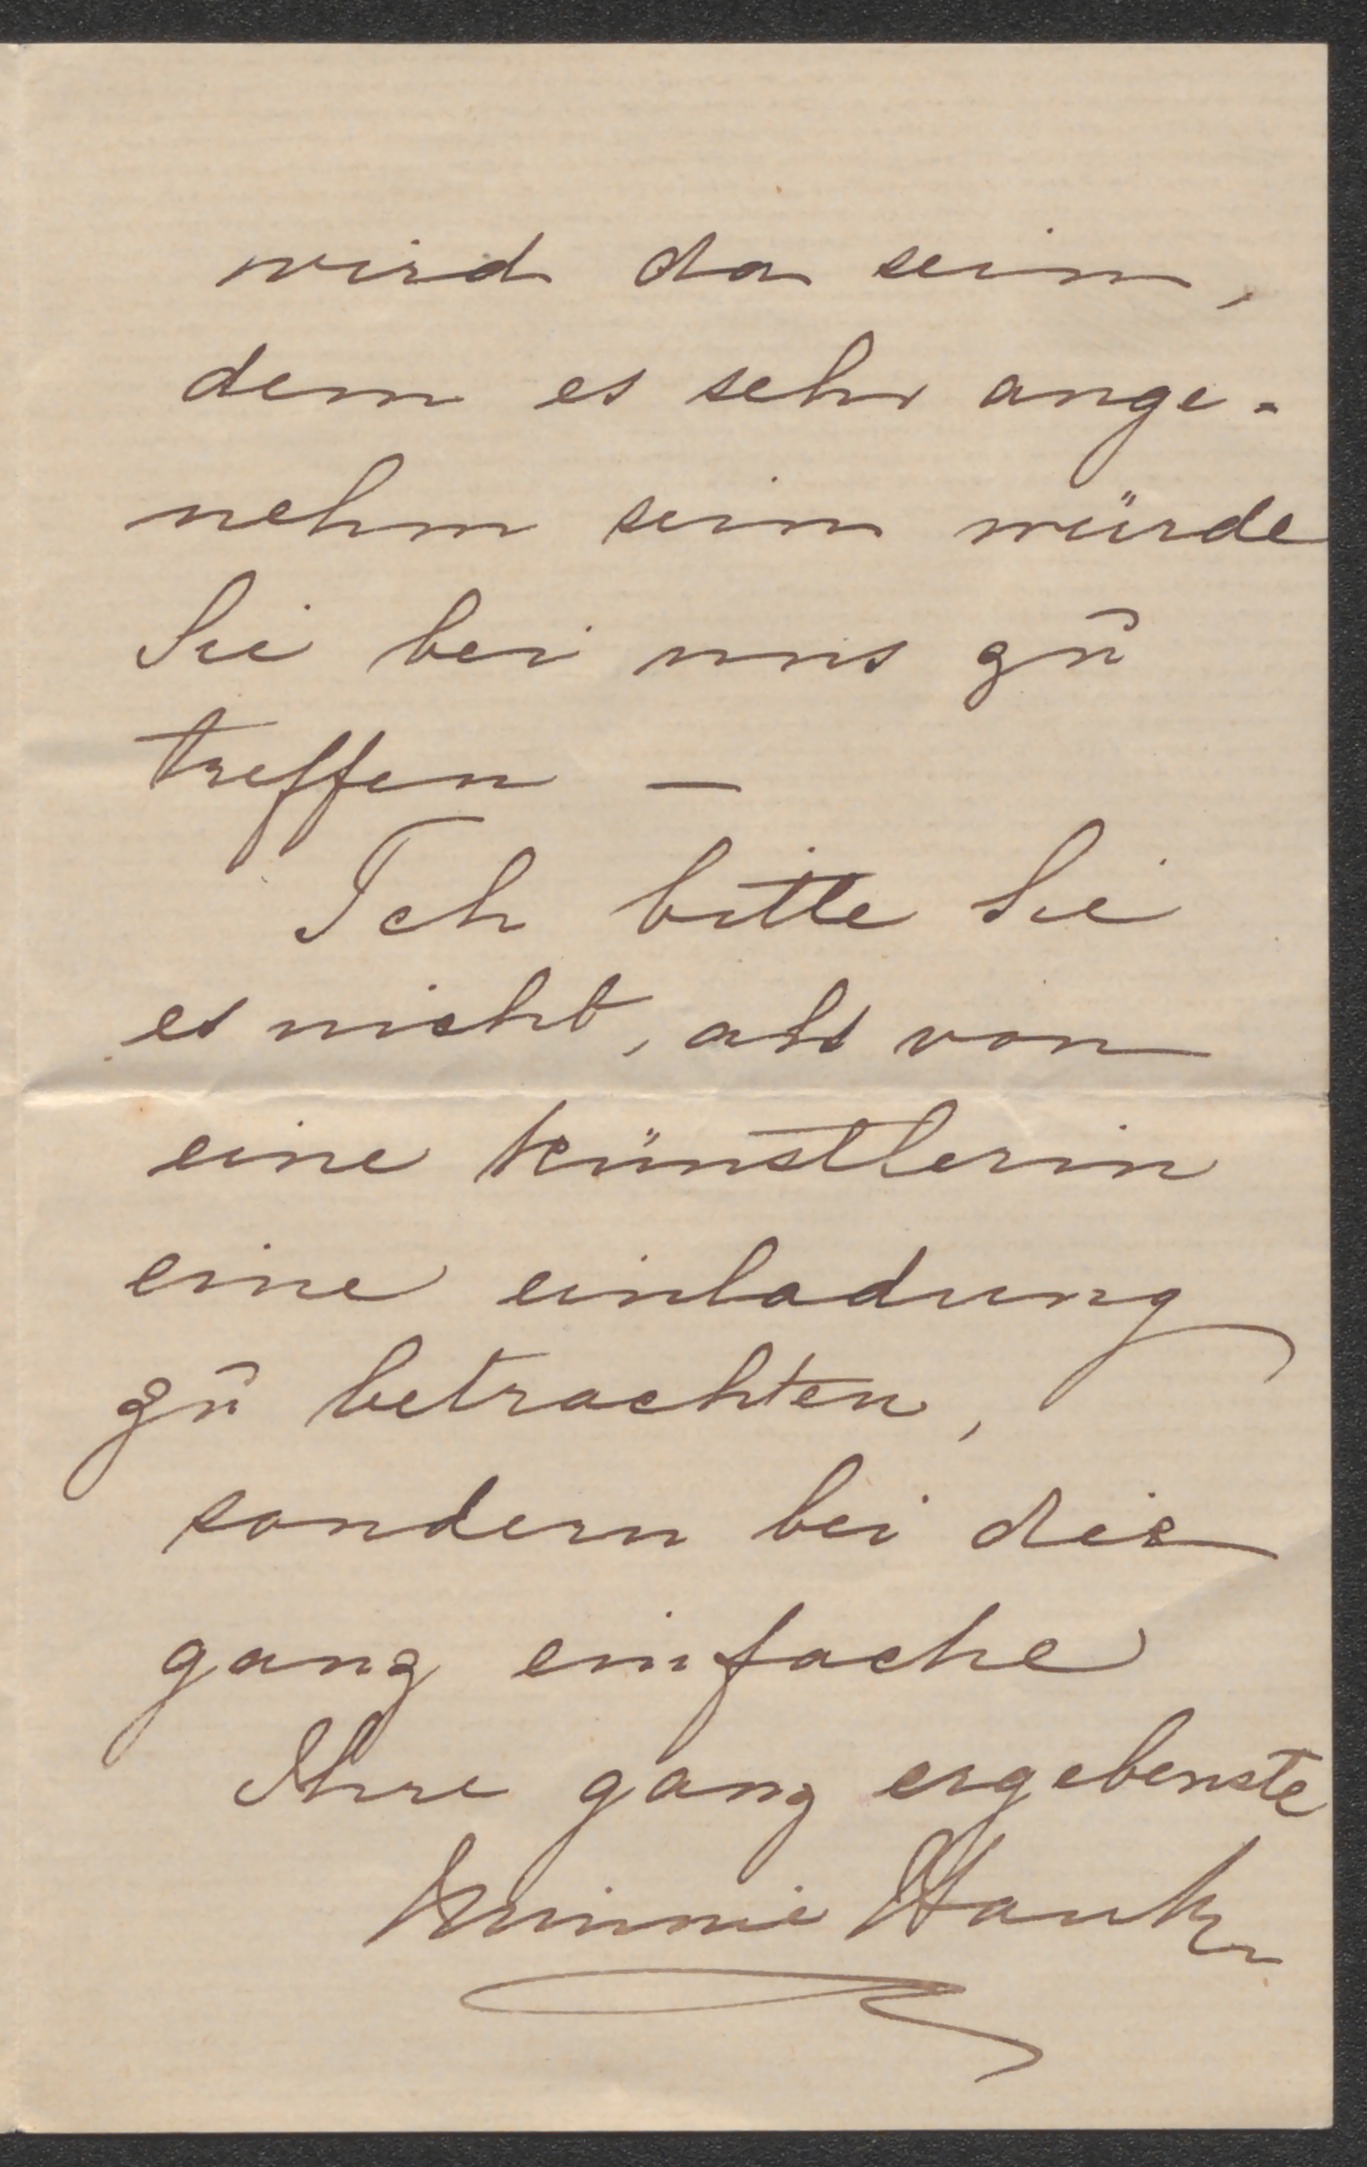 wird da sein,
dem es sehr ange-
nehm sein würde
Sie bei uns zu
treffen —
Ich bitte Sie
es nicht, als von
eine künstlerin
eine einladung
zu betrachten,
sondern bei die
ganz einfache
Ihre ganz ergebenste
Minnie Hauk